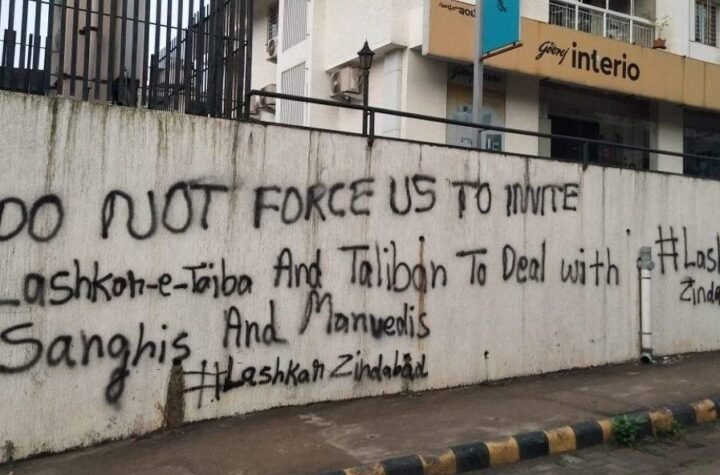 Godrej interio
DO NOT FORCE US TO INVITE
Lashkar-e-Taiba And Taliban To Deal with
Sanghis And Manvedis
#Lashkar Zindabad
#Lash
Zinda